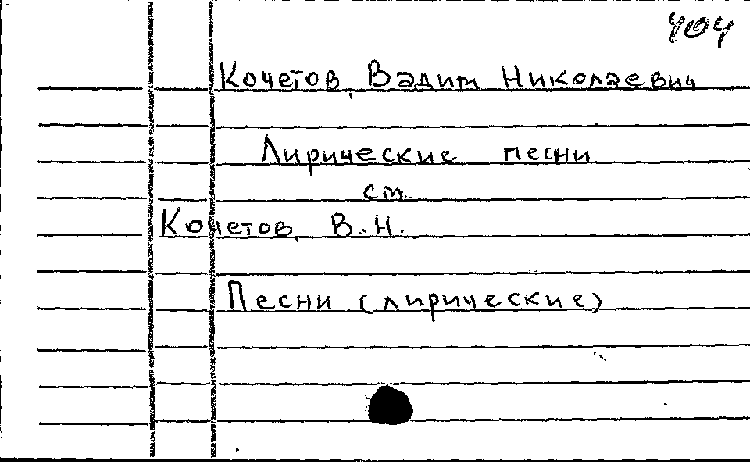 404
Кочетов, Вадим Николаевич
Лирические песни
см.
Кочетов, В.Н.
Песни (лирические)